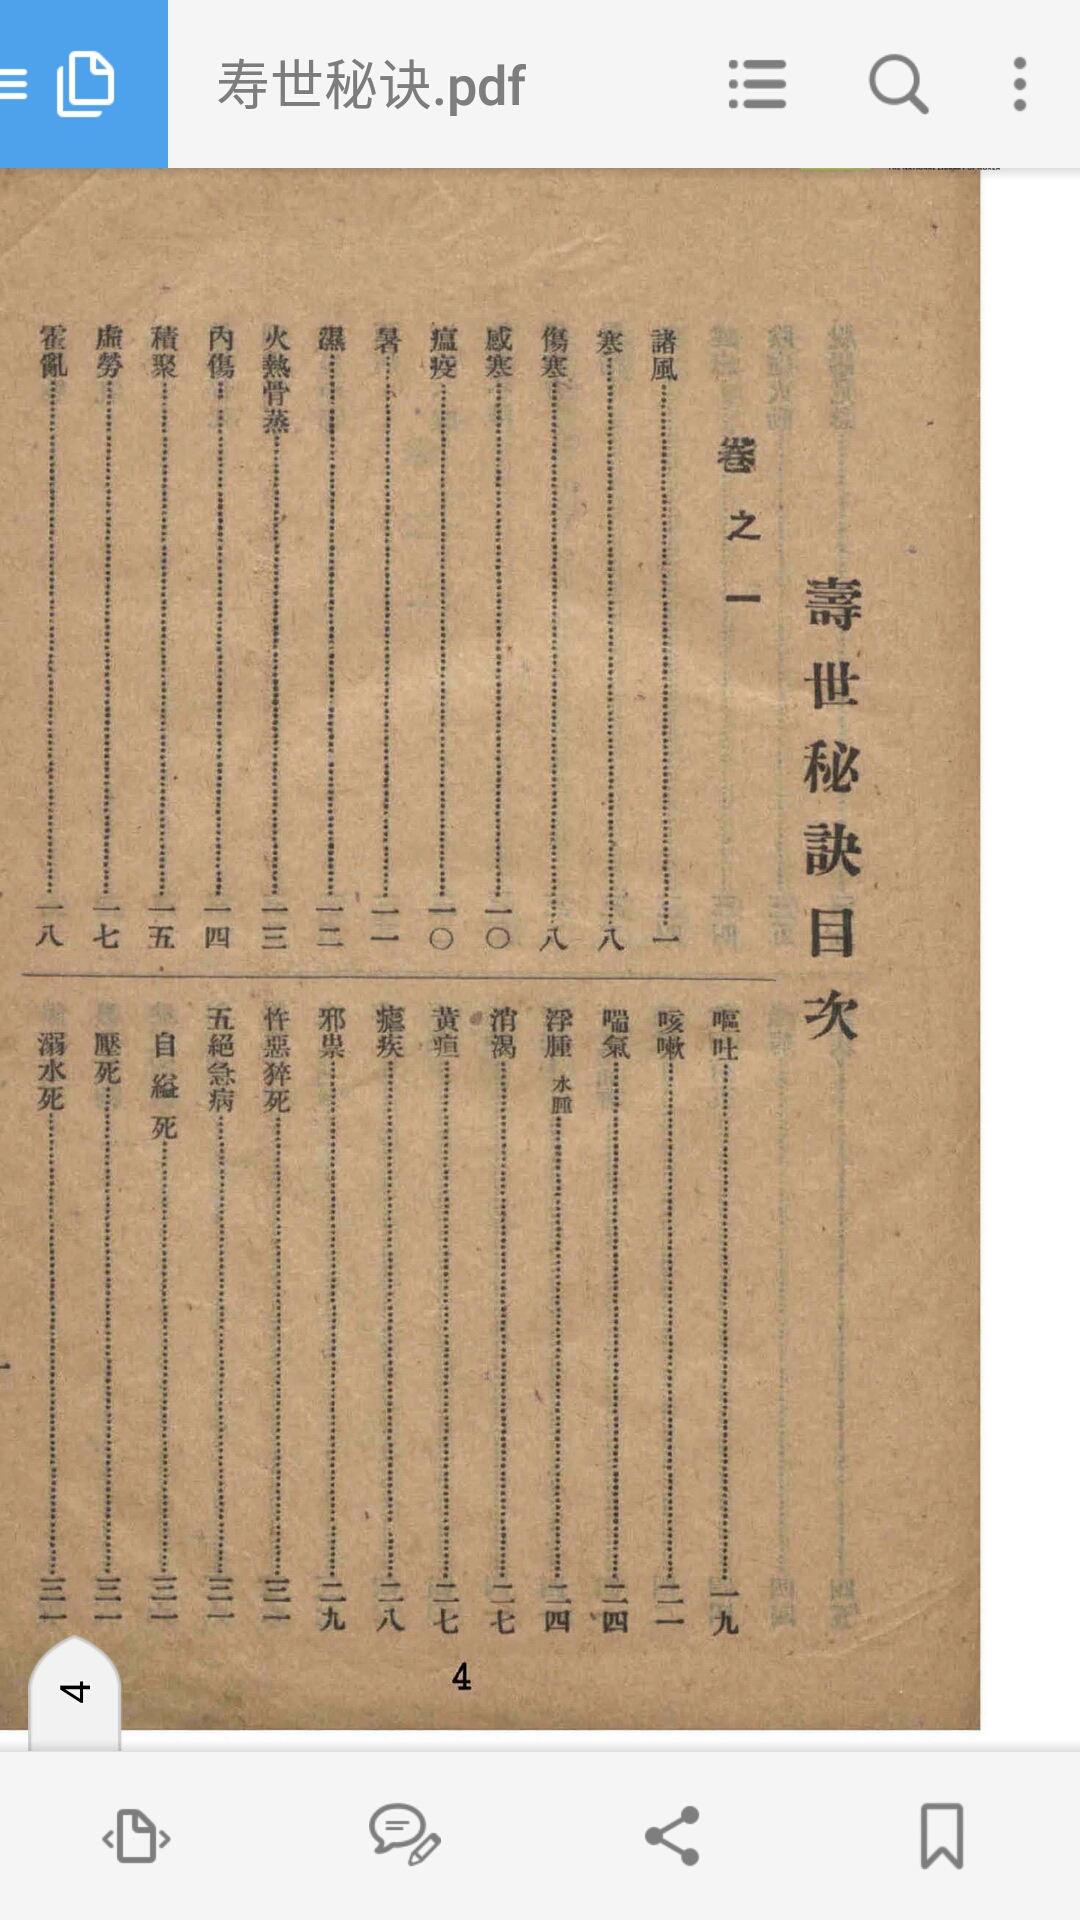 寿世秘诀.pdf
壽世秘訣目次
卷之一
諸風 一
寒 八
傷寒 八
感寒 一〇
瘟疫 一〇
暑 一一
濕 一二
火熱骨蒸 一三
內傷 一四
積聚 一五
虛勞 一七
霍亂 一八
嘔吐 一九
咳嗽 二一
喘氣 二四
浮腫 水腫 二四
消渴 二七
黃疸 二七
瘧疾 二八
邪祟 二九
忤惡猝死 三一
五絕急病 三一
自縊死 三一
壓死 三一
溺水死 三一
4
4